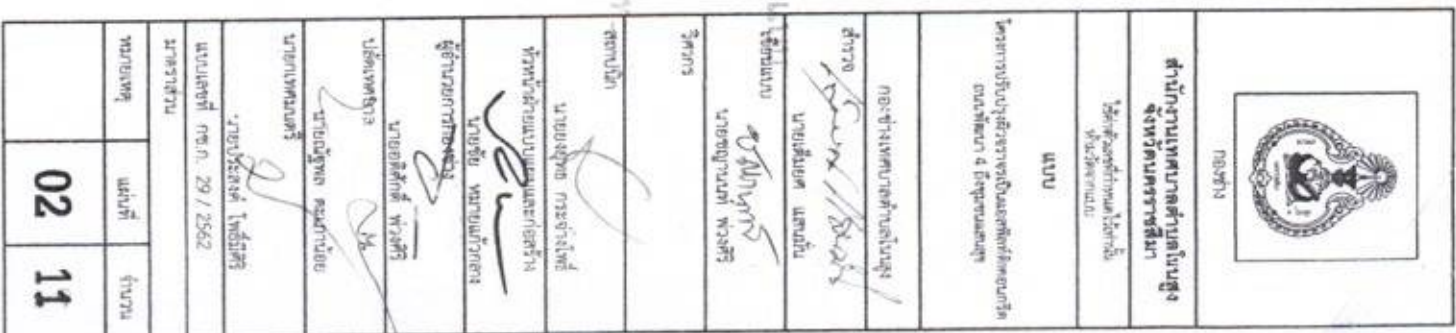 กองช่าง
สำนักงานเทศบาลตำบลโนนสูง
จังหวัดนครราชสีมา
ใช้ค่าตัวเลขที่กำหนดไว้เท่านั้น
ห้ามวัดจากแบบ
แบบ
โครงการปรับปรุงผิวจราจรเป็นแอสฟัลท์ติกคอนกรีต
ถนนพัฒนา 4 ถึงชุมชนแสนสุข
กองช่างเทศบาลตำบลโนนสูง
สำรวจ
นายเติมยศ แสนมั่น
เขียนแบบ
นายชญานนท์ พ่วงศิริ
วิศวกร
สถาปนิก
นายยงยุทธ กระจ่างโพธิ์
หัวหน้าฝ่ายแบบแผนและก่อสร้าง
นายชัย หมายแก้วกลาง
ผู้อำนวยการกองช่าง
นายอดิศักดิ์ พ่วงศิริ
ปลัดเทศบาล
นายณัฐพล
นายกเทศมนตรี
นายประสงค์ โพธิ์มีศิริ
แบบเลขที่ กช.ก. 29 / 2562
มาตราส่วน
หมายเหตุ แผ่นที่ จำนวน
02 11